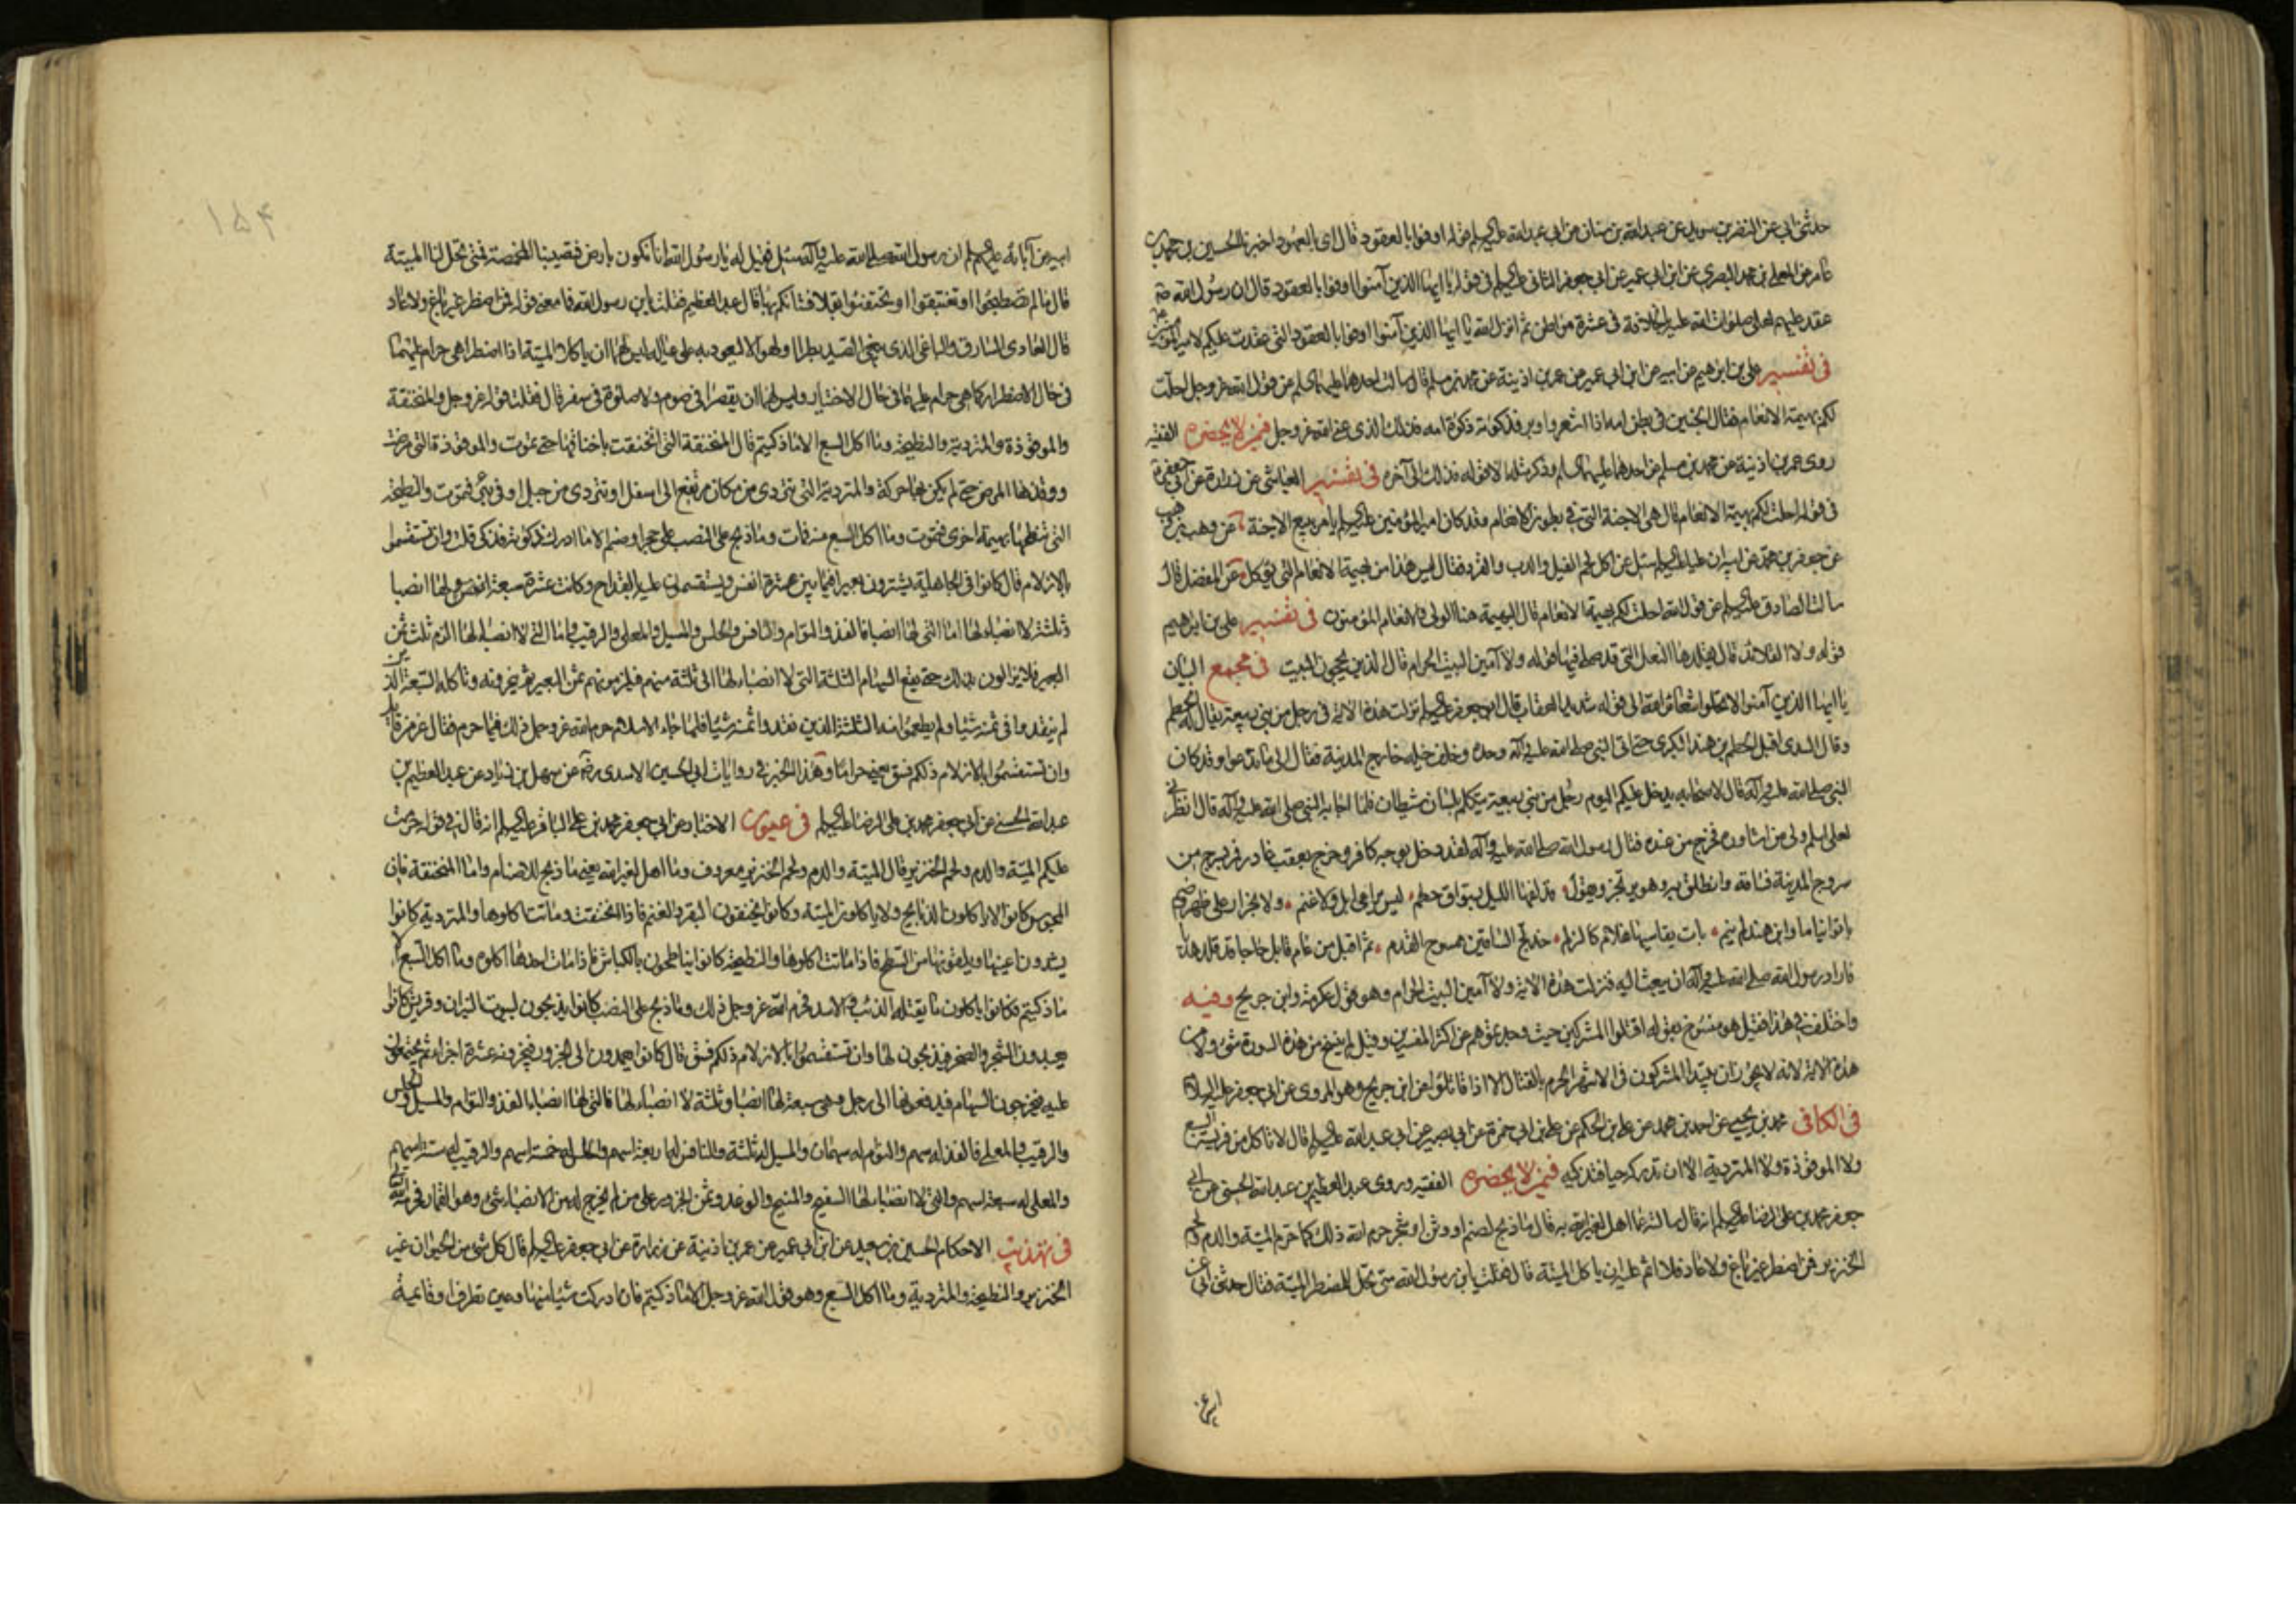 حدثنى ابى عن النضر بن سويد عن عبد الله بن سنان عن ابى عبد الله عليه السلم قوله اوفوا بالعقود قال اى بالعهود اخبرنا الحسين بن محمد بن
عامر عن المعلى بن محمد البصرى عن ابن ابى عمير عن ابى جعفر الثانى عليه السلم فى قوله يا ايها الذين آمنوا اوفوا بالعقود قال ان رسول الله ص
عقد عليهم لعلى صلوات الله عليه بالخلافة فى عشرة مواطن ثم انزل الله يا ايها الذين آمنوا اوفوا بالعقود التى عقدت عليكم لامير المؤمنين
فى تفسير على بن ابرهيم عن ابيه عن ابن ابى عمير عن عمر بن اذينة عن محمد بن مسلم قال سالت احدهما عليهما السلم عن قول الله عز وجل احلت
لكم بهيمة الانعام فقال الجنين فى بطن امه اذا اشعر واوبر فذكوته ذكوة امه فذلك الذى عنى الله عز وجل فيمن لا يحضره الفقيه
روى عمر بن اذينة عن محمد بن مسلم عن احدهما عليهما السلم وذكر مثله الا قوله فذلك الى آخره فى تفسير العياشى عن زرارة عن ابى جعفر ع
فى قوله احلت لكم بهيمة الانعام قال هى الاجنة التى فى بطون الانعام وقد كان امير المؤمنين عليه السلم يامر ببيع الاجنة عن وهب بن وهب
عن جعفر بن محمد عن ابيه ان عليا عليه السلم سئل عن اكل لحم الفيل والدب والقرد فقال ليس هذا من بهيمة الانعام التى تؤكل عن المفضل قال
سالت الصادق عليه السلم عن قول الله احلت لكم بهيمة الانعام قال البهيمة هنا الولى والانعام المؤمنون فى تفسير على بن ابرهيم
قوله ولا القلائد قال يقلدها النعل التى قد صلى فيها قوله ولا آمين البيت الحرام قال الذين يحجون البيت فى مجمع البيان
يا ايها الذين آمنوا لا تحلوا شعائر الله الى قوله شديد العقاب قال ابو جعفر عليه السلم نزلت هذه الاية فى رجل من بنى ربيعة يقال له الحطم
وقال السدى اقبل الحطم بن هند البكرى حتى اتى النبى صلى الله عليه وآله وحده وخلف خيله خارج المدينة فقال الى ما تدعوا وقد كان
النبى صلى الله عليه وآله قال لاصحابه يدخل عليكم اليوم رجل من بنى ربيعة يتكلم بلسان شيطان فلما اجابه النبى صلى الله عليه وآله قال انظرنى
لعلى اسلم ولى من اشاوره فخرج من عنده فقال رسول الله صلى الله عليه وآله لقد دخل بوجه كافر وخرج بعقب غادر فمر بسرح من
سروح المدينة فساقه وانطلق به وهو يرتجز ويقول قد لفها الليل بسواق حطم ليس براعى ابل ولا غنم ولا بجزار على ظهر وضم
باتوا نياما وابن هند لم ينم بات يقاسيها غلام كالزلم خدلج الساقين ممسوح القدم ثم اقبل من عام قابل حاجا قد قلد هديا
فاراد رسول الله صلى الله عليه وآله ان يبعث اليه فنزلت هذه الاية ولا آمين البيت الحرام وهو قول عكرمة وابن جريح وفيه
واختلف فى هذا فقيل هو منسوخ بقوله اقتلوا المشركين حيث وجدتموهم عن اكثر المفسرين وقيل لم ينسخ من هذه السورة شئ ولا من
هذه الاية لانه لا يجوز ان يبتدأ المشركون فى الاشهر الحرم بالقتال الا اذا قاتلوا عن ابن جريح وهو المروى عن ابى جعفر عليه السلام
فى الكافى محمد بن يحيى عن احمد بن محمد عن على بن الحكم عن على بن ابى حمزة عن ابى بصير عن ابى عبد الله عليه السلم قال لا تاكل من فريسة السبع
ولا الموقوذة ولا المتردية الا ان تدركه حيا فتذكيه فيمن لا يحضره الفقيه وروى عبد العظيم بن عبد الله الحسنى عن ابى
جعفر محمد بن على الرضا عليه السلم انه قال سالته عما اهل لغير الله به قال ما ذبح لصنم او وثن او شجر حرم الله ذلك كما حرم الميتة والدم ولحم
الخنزير فمن اضطر غير باغ ولا عاد فلا اثم عليه ان ياكل الميتة قال فقلت يابن رسول الله متى تحل للمضطر الميتة فقال حدثنى ابى عن
۱۵۴
ابيه عن آبائه عليهم السلم ان رسول الله صلى الله عليه وآله سئل فقيل له يا رسول الله انا نكون بارض فتصيبنا المخمصة فمتى تحل لنا الميتة
قال ما لم تصطبحوا او تغتبقوا او تحتفئوا بقلا فشانكم بها قال عبد العظيم فقلت يابن رسول الله فما معنى قوله فمن اضطر غير باغ ولا عاد
قال العادى السارق والباغى الذى يبغى الصيد بطرا ولهوا لا ليعود به على عياله ليس لهما ان ياكلا الميتة اذا اضطرا هى حرام عليهما
فى حال الاضطرار كما هى حرام عليهما فى حال الاختيار وليس لهما ان يقصرا فى صوم ولا صلوة فى سفر قال فقلت قوله عز وجل والمنخنقة
والموقوذة والمتردية والنطيحة وما اكل السبع الا ما ذكيتم قال المنخنقة التى انخنقت باخناقها حتى تموت والموقوذة التى مرضت
ووقذها المرض حتى لم يكن بها حركة والمتردية التى تتردى من مكان مرتفع الى اسفل او تتردى من جبل او فى بئر فتموت والنطيحة
التى تنطحها بهيمة اخرى فتموت وما اكل السبع منه فمات وما ذبح على النصب على حجر او صنم الا ما ادرك ذكوته فذكى قلت وان تستقسموا
بالازلام قال كانوا فى الجاهلية يشترون بعيرا فيما بين عشرة انفس ويستقسمون عليه بالقداح وكانت عشرة سبعة انصباء لها انصبا
وثلثة لا انصباء لها اما التى لها انصبا فالفذ والتوام والنافس والحلس والمسبل والمعلى والرقيب واما التى لا انصباء لها
البعير فلا يزالون بذلك حتى يقع السهام الثلثة التى لا انصباء لها الى ثلثة منهم فيلزمونهم ثمن البعير ثم ينحرونه وتاكله السبعة الذين
لم ينقدوا فى ثمنه شيئا ولم يطعموا منه الثلثة الذين نقدوا ثمنه شيئا فلما جاء الاسلام حرم الله عز وجل ذلك فيما حرم فقال عز من قائل
وان تستقسموا بالازلام ذلكم فسق يعنى حراما وهذا الخبر فى روايات ابى الحسين الاسدى ره عن سهل بن زياد عن عبد العظيم بن
عبد الله الحسنى عن ابى جعفر محمد بن على الرضا عليه السلم فى عيون الاخبار عن ابى جعفر محمد بن على الباقر عليه السلم انه قال فى قوله حرمت
عليكم الميتة والدم ولحم الخنزير قال الميتة والدم ولحم الخنزير معروف وما اهل لغير الله يعنى ما ذبح للاصنام واما المنخنقة فان
المجوس كانوا لا ياكلون الذبايح ولا ياكلون الميتة وكانوا يخنقون البقر والغنم فاذا انخنقت وماتت اكلوها والمتردية كانوا
يشدون اعينها ويلقونها من السطح فاذا ماتت اكلوها والنطيحة كانوا يناطحون بالكباش فاذا مات احدها اكلوه وما اكل السبع الا
ما ذكيتم فكانوا ياكلون ما يقتله الذئب والاسد فحرم الله عز وجل ذلك وما ذبح على النصب كانوا يذبحون لبيوت النيران وقريش كانوا
يعبدون الشجر والصخر فيذبحون لها وان تستقسموا بالازلام ذلكم فسق قال كانوا يعمدون الى الجزور فيجزونه عشرة اجزاء ثم يجتمعون
عليه فيخرجون السهام فيدفعونها الى رجل وهى سبعة لها انصبا وثلثة لا انصباء لها فالتى لها انصباء الفذ والتوام والمسبل
والرقيب والمعلى فالفذ له سهم والتوام له سهمان والمسبل له ثلثة والنافس له اربعة اسهم والحلس له خمسة اسهم والرقيب له ستة اسهم
والمعلى له سبعة اسهم والتى لا انصباء لها السفيح والمنيح والوغد وثمن الجزور على من لم يخرج له من الانصباء شئ وهو القمار فحرمه الله
فى تهذيب الاحكام الحسين بن سعيد عن ابن ابى عمير عن عمر بن اذينة عن زرارة عن ابى جعفر عليه السلم قال كل شئ من الحيوان غير
الخنزير والنطيحة والمتردية وما اكل السبع وهو قول الله عز وجل الا ما ذكيتم فان ادركت شيئا منها وعين تطرف او قائمة